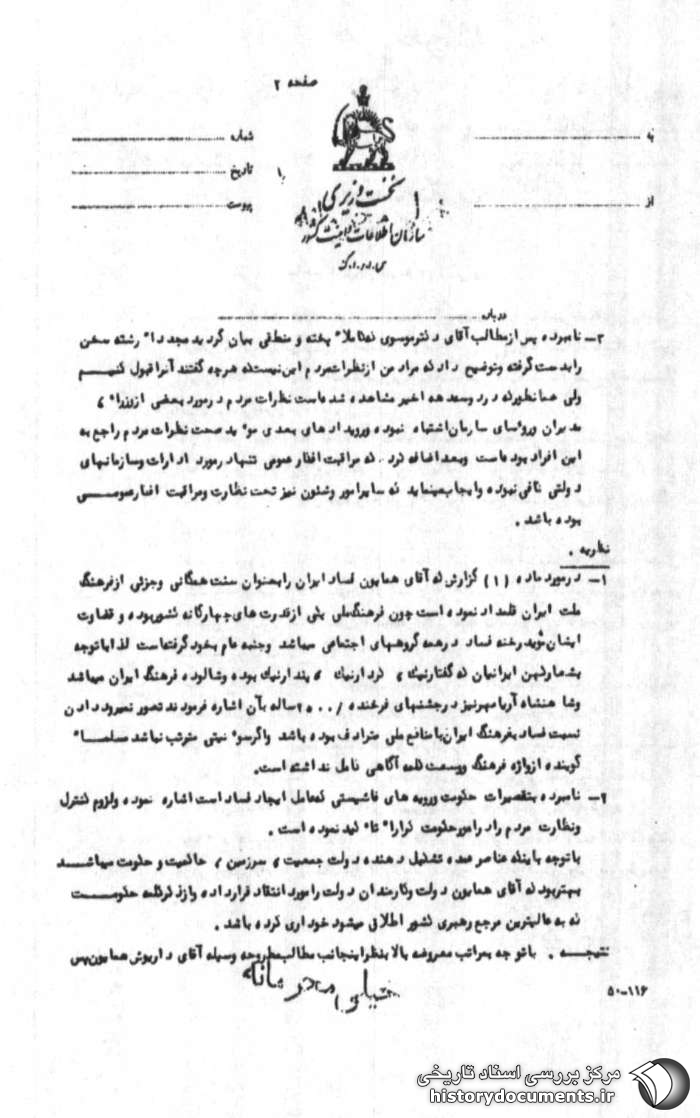 صفحه ۲
به
شماره
تاریخ
از
پیوست
نخست وزیری
سازمان اطلاعات و امنیت کشور
س.ا.و.ا.ک
درباره
۳- نامبرده پس از مطالب آقای دکتر موسوی که کاملا" پخته و منطقی بیان گردید مجددا" رشته سخن
را بدست گرفته و توضیح داد که مراد من از نظرات مردم این نیست که هر چه گفتند آنرا قبول کنیم
ولی همانطور که در دو سه دهه اخیر مشاهده شده است نظرات مردم در مورد بعضی از وزرا" ،
مدیران و روسای سازمان اشتباه نبوده و رویدادهای بعدی موید صحت نظرات مردم راجع به
این افراد بوده است وبعد اضافه کرد . که مراقبت افکار عمومی تنها در مورد ادارات و سازمانهای
دولتی کافی نبوده و ایجاب مینماید که سایر امور و شئون نیز تحت نظارت و مراقبت افکار عمومی
بوده باشد .
نظریه .
۱- در مورد ماده (۱) گزارش که آقای همایون فساد ایران را بعنوان سنت همگانی و جزئی از فرهنگ
ملت ایران قلمداد نموده است چون فرهنگ ملی یکی از قدرت های چهارگانه کشور بوده و قضاوت
ایشان موید رخنه فساد در همه گروههای اجتماعی میباشد وجنبه عام بخود گرفته است لذا با توجه
بشعار کهن ایرانیان که گفتار نیک ، کردار نیک ، پندار نیک بوده و شالوده فرهنگ ایران میباشد
و شاهنشاه آریامهر نیز در جشنهای فرخنده ۲۵۰۰ ساله بآن اشاره فرمودند تصور نمیرود دادن
نسبت فساد بفرهنگ ایران با منافع ملی مترادف بوده باشد واگر سو" نیتی مترتب نباشد مسلما"
گوینده از واژه فرهنگ و وسعت کلمه آگاهی کامل نداشته است.
۲- نامبرده بتقصیرات حکومت و رویه های فاشیستی که عامل ایجاد فساد است اشاره نموده و لزوم کنترل
و نظارت مردم را در امور حکومت کرارا" تا" کید نموده است .
با توجه باینکه عناصر عمده تشکیل دهنده دولت جمعیت ، سرزمین ، حاکمیت و حکومت میباشد
بهتر بود که آقای همایون دولت و کارمندان دولت را مورد انتقاد قرار داده و از ذکر کلمه حکومت
که به عالیترین مرجع رهبری کشور اطلاق میشود خودداری کرده باشد .
نتیجه . با توجه بمراتب معروضه بالا بنظر اینجانب مطالب مطروحه وسیله آقای داریوش همایون پس
خیلی محرمانه
۵۰-۱۱۶
مرکز بررسی اسناد تاریخی
historydocuments.ir